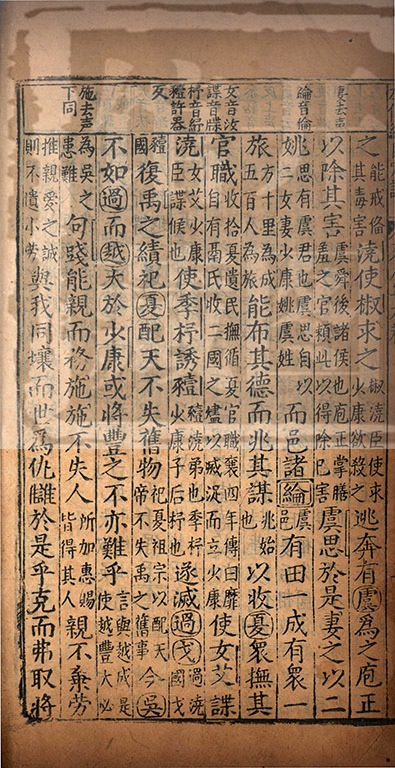 妻去声
之能戒備其毒害澆使椒求之椒澆臣使求少康欲殺之逃奔有虞為之庖正
以除其害虞舜後諸侯也庖正掌膳羞之官頼此以得除己害虞思於是妻之以二
綸音倫
姚思有虞君也虞思自以二女妻少康姚虞姓而邑諸綸綸虞邑有田一成有衆一
旅方十里為成五百人為旅能布其德而兆其謀兆始也以收夏衆撫其
女音汝
諜音牒
官職收拾夏遺民撫循夏官職襄四年傳曰靡自有鬲氏收二國之燼以滅浞而立少康使女艾諜
杼音紓
豷許器
反
澆女艾少康臣諜候也使季杼誘豷豷澆弟也季杼少康子后杼也遂滅過戈過澆國戈
豷國復禹之績祀夏配天不失舊物祀夏祖宗以配天帝不失禹之舊事今吳
不如過而越大於少康或將豐之不亦難乎言與越成是使越豐大必
施去声
下同
為吳之患難句踐能親而務施施不失人所加惠賜皆得其人親不棄勞
推親愛之誠則不遺小勞與我同壤而世為仇讎於是乎克而弗取將